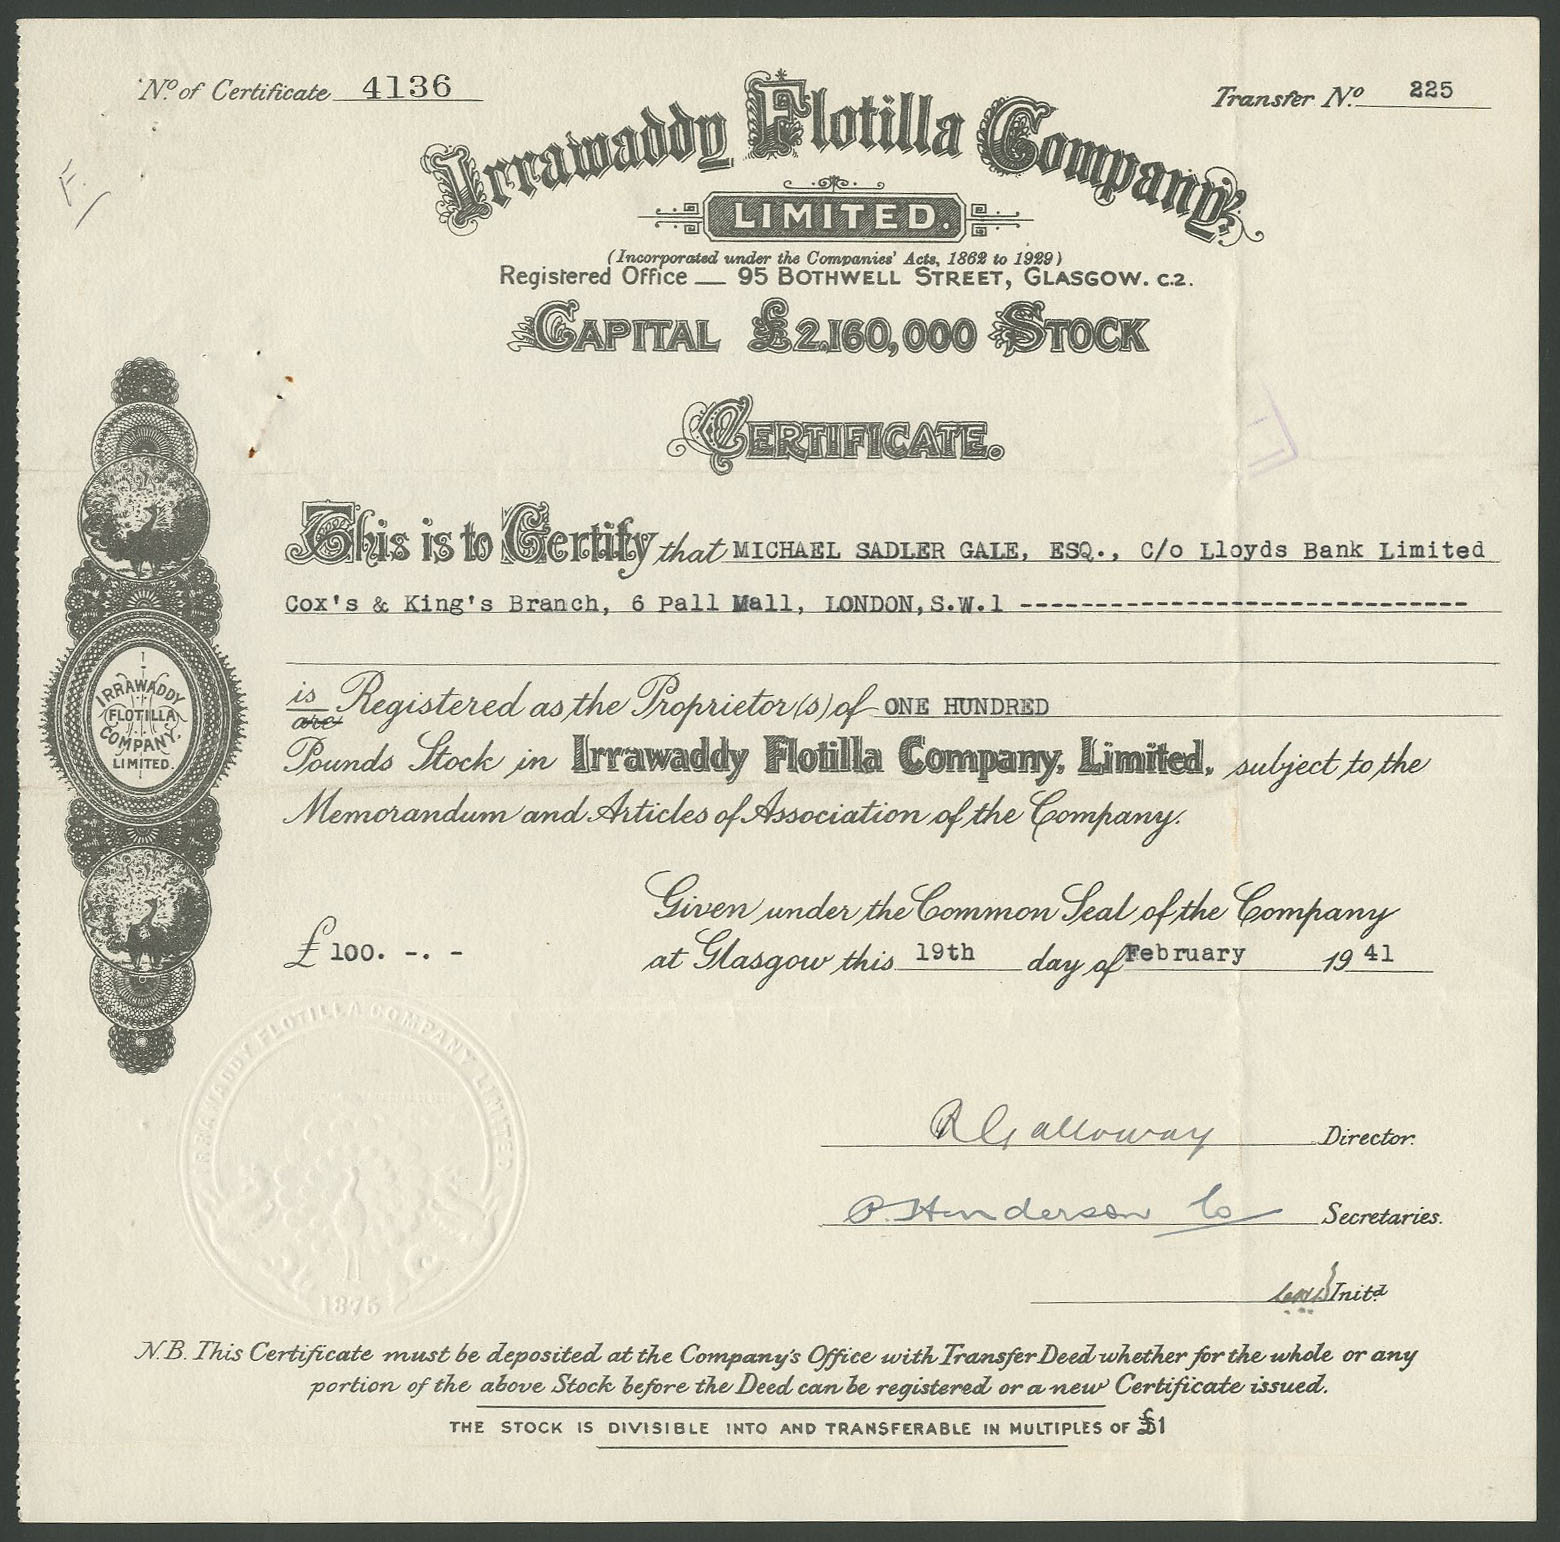 No. of Certificate 4136
Transfer No. 225
F.
Irrawaddy Flotilla Company,
LIMITED.
(Incorporated under the Companies' Acts, 1862 to 1929)
Registered Office — 95 BOTHWELL STREET, GLASGOW. C.2.
CAPITAL £2,160,000 STOCK
CERTIFICATE.
This is to Certify that MICHAEL SADLER GALE, ESQ., C/o Lloyds Bank Limited
Cox's & King's Branch, 6 Pall Mall, LONDON, S.W.1 ------------------------------
is
are Registered as the Proprietor(s) of ONE HUNDRED
Pounds Stock in Irrawaddy Flotilla Company, Limited, subject to the
Memorandum and Articles of Association of the Company.
IRRAWADDY
FLOTILLA
COMPANY,
LIMITED.
Given under the Common Seal of the Company
£ 100. -. - at Glasgow this 19th day of February 1941
IRRAWADDY FLOTILLA COMPANY LIMITED
1875
R Galloway Director.
P. Henderson Co Secretaries.
Initd
N.B. This Certificate must be deposited at the Company's Office with Transfer Deed whether for the whole or any
portion of the above Stock before the Deed can be registered or a new Certificate issued.
THE STOCK IS DIVISIBLE INTO AND TRANSFERABLE IN MULTIPLES OF £1